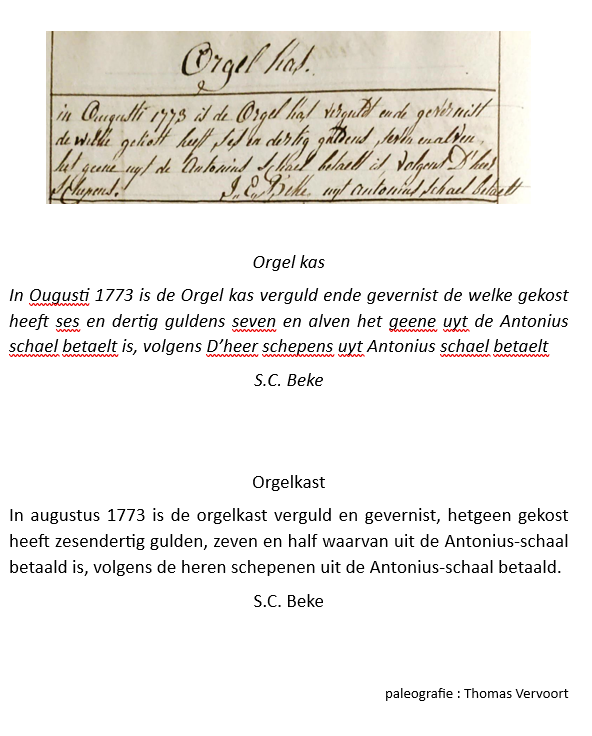 Orgel kas.
in Ougusti 1773 is de Orgel kas verguldt ende gevernist
de welke gekost heeft ses en dertig guldens, seven en alven,
het geene uyt de Antonius schael betaelt is, volgens D'heer
schepens. Beke uyt antonius schael betaelt
Orgel kas
In Ougusti 1773 is de Orgel kas verguld ende gevernist de welke gekost
heeft ses en dertig guldens seven en alven het geene uyt de Antonius
schael betaelt is, volgens D’heer schepens uyt Antonius schael betaelt
S.C. Beke
Orgelkast
In augustus 1773 is de orgelkast verguld en gevernist, hetgeen gekost
heeft zesendertig gulden, zeven en half waarvan uit de Antonius-schaal
betaald is, volgens de heren schepenen uit de Antonius-schaal betaald.
S.C. Beke
paleografie : Thomas Vervoort